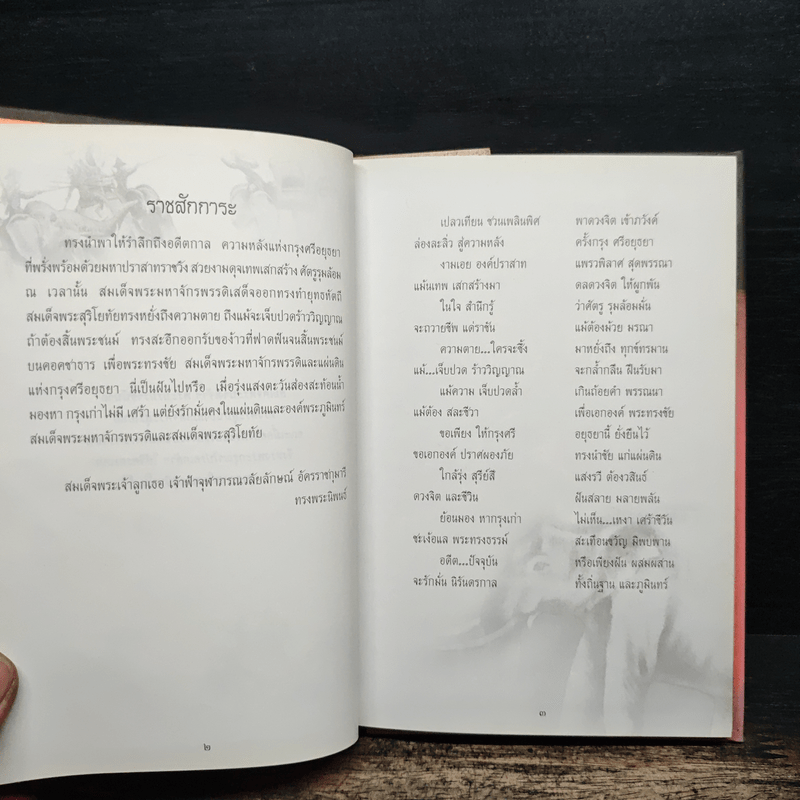 ราชสักการะ
ทรงนำพาให้รำลึกถึงอดีตกาล ความหลังแห่งกรุงศรีอยุธยา
ที่พรั่งพร้อมด้วยมหาปราสาทราชวัง สวยงามดุจเทพเสกสร้าง ศัตรูรุมล้อม
ณ เวลานั้น สมเด็จพระมหาจักรพรรดิเสด็จออกทรงทำยุทธหัตถี
สมเด็จพระสุริโยทัยทรงหยั่งถึงความตาย ถึงแม้จะเจ็บปวดร้าววิญญาณ
ถ้าต้องสิ้นพระชนม์ ทรงสะอึกออกรับของ้าวที่ฟาดฟันจนสิ้นพระชนม์
บนคอคชาธาร เพื่อพระทรงชัย สมเด็จพระมหาจักรพรรดิและแผ่นดิน
แห่งกรุงศรีอยุธยา นี่เป็นฝันไปหรือ เพื่อรุ่งแสงตะวันส่องสะท้อนน้ำ
มองหา กรุงเก่าไม่มี เศร้า แต่ยังรักมั่นคงในแผ่นดินและองค์พระภูมินทร์
สมเด็จพระมหาจักรพรรดิและสมเด็จพระสุริโยทัย
สมเด็จพระเจ้าลูกเธอ เจ้าฟ้าจุฬาภรณวลัยลักษณ์ อัครราชกุมารี
ทรงพระนิพนธ์
๒
เปลวเทียน ชวนเพลินพิศ พาดวงจิต เข้าภวังค์
ล่องละลิ่ว สู่ความหลัง ครั้งกรุง ศรีอยุธยา
งามเอย องค์ปราสาท แพรวพิลาศ สุดพรรณา
แม้นเทพ เสกสร้างมา ดลดวงจิต ให้ผูกพัน
ในใจ สำนึกรู้ ว่าศัตรู รุมล้อมมั่น
จะถวายชีพ แด่ราชัน แม้ต้องม้วย มรณา
ความตาย...ใครจะซึ้ง มาหยั่งถึง ทุกข์ทรมาน
แม้...เจ็บปวด ร้าววิญญาณ จะกล้ำกลืน ฝืนรับมา
แม้ความ เจ็บปวดล้ำ เกินถ้อยคำ พรรณนา
แม้ต้อง สละชีวา เพื่อเอกองค์ พระทรงชัย
ขอเพียง ให้กรุงศรี อยุธยานี้ ยั่งยืนไว้
ขอเอกองค์ ปราศผองภัย ทรงนำชัย แก่แผ่นดิน
ใกล้รุ่ง สุรีย์สี แสงรวี ต้องวสินธ์
ดวงจิต และชีวิน ฝันสลาย มลายพลัน
ย้อนมอง หากรุงเก่า ไม่เห็น...เหงา เศร้าชีวัน
ชะเง้อแล พระทรงธรรม์ สะเทือนขวัญ มิพบพาน
อดีต...ปัจจุบัน หรือเพียงฝัน ผสมผสาน
จะรักมั่น นิรันดรกาล ทั้งถิ่นฐาน และภูมินทร์
๓